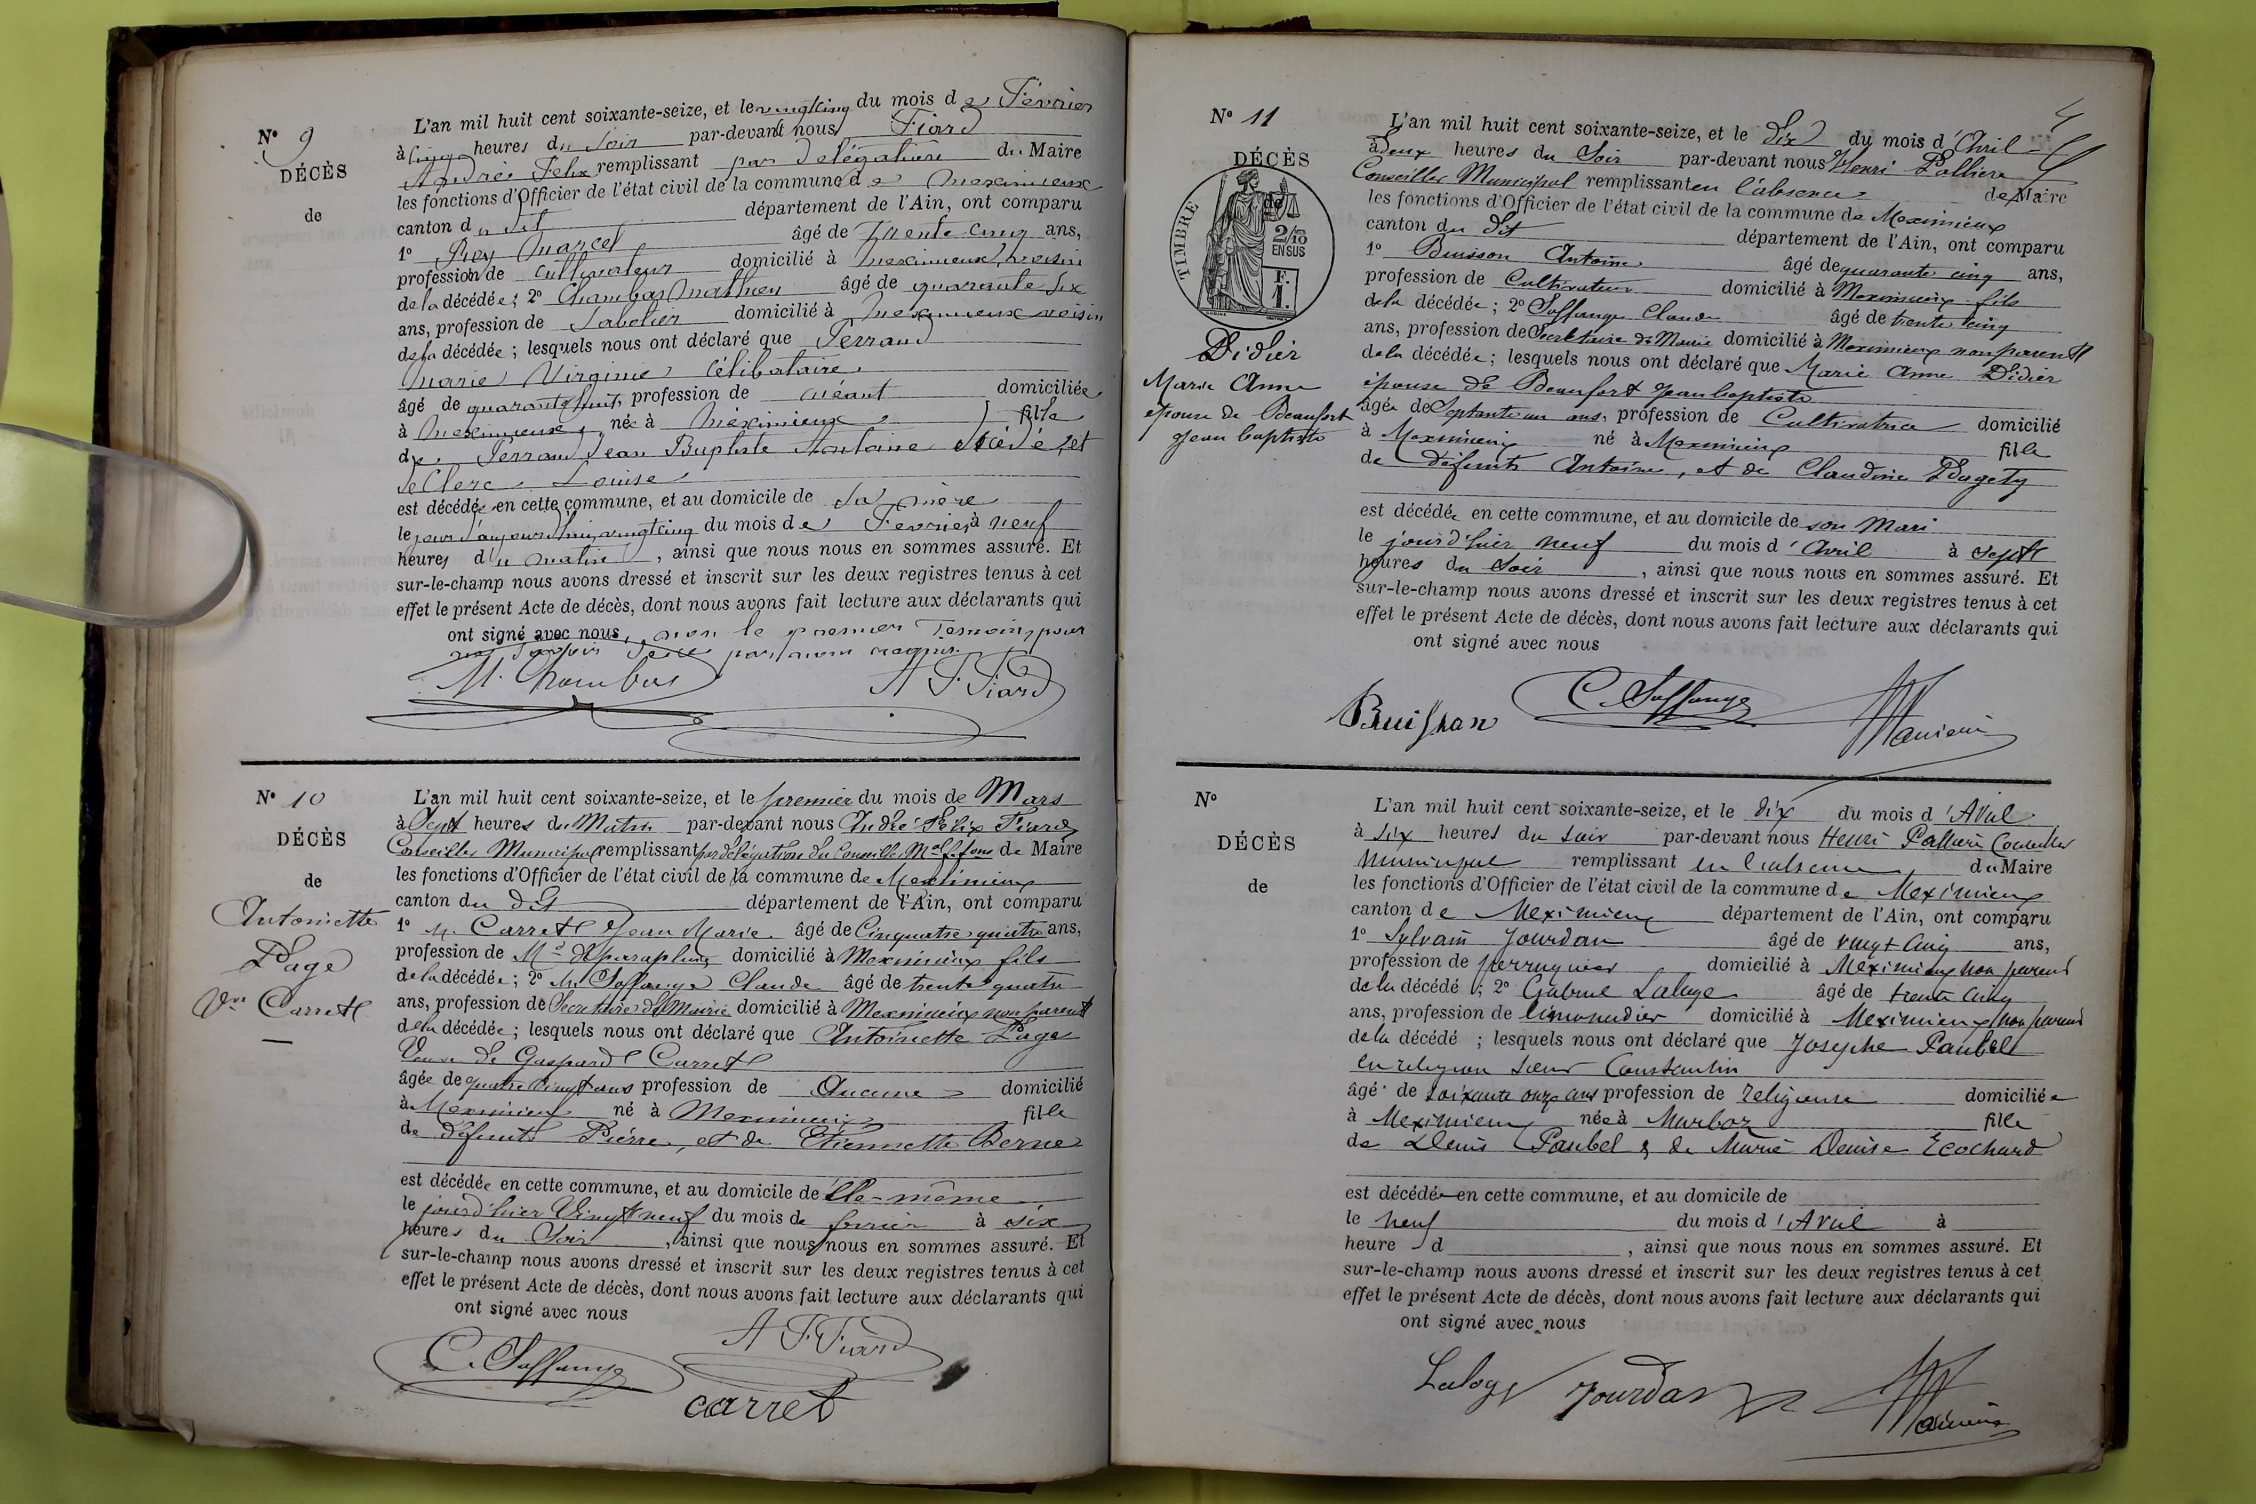 N° 9
DÉCÈS
de
L'an mil huit cent soixante-seize, et le vingt cinq du mois de Février
à cinq heures du Soir par-devant nous Fiard
André Félix remplissant par délégation du Maire
les fonctions d'Officier de l'état civil de la commune de Meximieux
canton du dit département de l'Ain, ont comparu
1° Rey Marcel âgé de trente cinq ans,
profession de cultivateur domicilié à Meximieux, voisin
de la décédée ; 2° Chambas Mathieu âgé de quarante six
ans, profession de Sabotier domicilié à Meximieux voisin
de la décédée ; lesquels nous ont déclaré que Ferrand
Marie Virginie Célibataire
âgé de quarante huit profession de néant domiciliée
à Meximieux, née à Meximieux fille
de Ferrand Jean Baptiste Antoine décédé, et
Leclerc Louise
est décédée en cette commune, et au domicile de Sa mère
le jour d'aujourd'hui vingt cinq du mois de Février à neuf
heures du matin, ainsi que nous nous en sommes assuré. Et
sur-le-champ nous avons dressé et inscrit sur les deux registres tenus à cet
effet le présent Acte de décès, dont nous avons fait lecture aux déclarants qui
ont signé avec nous, non le premier Temoin, pour
M. Chambas A F. Fiard
N° 10
DÉCÈS
de
Antoinette
Page
Vve Carret
L'an mil huit cent soixante-seize, et le premier du mois de Mars
à Sept heures du Matin par-devant nous André Félix Fiard
Conseiller Municipal remplissant par délégation du Conseiller Mal f. fons de Maire
les fonctions d'Officier de l'état civil de la commune de Meximieux
canton du dit département de l'Ain, ont comparu
1° M. Carret Jean Marie âgé de Cinquante quatre ans,
profession de Md de parapluies domicilié à Meximieux fils
de la décédée ; 2° M. Soffange Claude âgé de trente quatre
ans, profession de Secrétaire de Mairie domicilié à Meximieux non parent
de la décédée ; lesquels nous ont déclaré que Antoinette Page
Veuve de Gaspard Carret
âgée de quatre vingt ans profession de Aucune domicilié
à Meximieux né à Meximieux fille
de défunts Pierre, et de Etiennette Berne
est décédée en cette commune, et au domicile de elle-même
le jour d'hier Vingt neuf du mois de fevrier à six
heures du Soir, ainsi que nous nous en sommes assuré. Et
sur-le-champ nous avons dressé et inscrit sur les deux registres tenus à cet
effet le présent Acte de décès, dont nous avons fait lecture aux déclarants qui
ont signé avec nous
C. Soffange A F. Fiard
carret
N° 11
DÉCÈS
de
TIMBRE
2/10
EN SUS
F.
1.
Didier
Marie Anne
épouse de Beaufort
Jean baptiste
L'an mil huit cent soixante-seize, et le Dix du mois d'Avril
à deux heures du Soir par-devant nous Henri Pallière
Conseiller Municipal remplissant en l'absence de Maire
les fonctions d'Officier de l'état civil de la commune de Meximieux
canton du dit département de l'Ain, ont comparu
1° Buisson Antoine âgé de quarante cinq ans,
profession de Cultivateur domicilié à Meximieux fils
de la décédée ; 2° Soffange Claude âgé de trente cinq
ans, profession de Secrétaire de Mairie domicilié à Meximieux non parent
de la décédée ; lesquels nous ont déclaré que Marie Anne Didier
épouse de Beaufort Jean baptiste
âgée de Septante un ans, profession de Cultivatrice domicilié
à Meximieux né à Meximieux fille
de défunts Antoine, et de Claudine Dagety
est décédée en cette commune, et au domicile de son Mari
le jour d'hier neuf du mois d'Avril à sept
heures du Soir, ainsi que nous nous en sommes assuré. Et
sur-le-champ nous avons dressé et inscrit sur les deux registres tenus à cet
effet le présent Acte de décès, dont nous avons fait lecture aux déclarants qui
ont signé avec nous
Buisson C. Soffange
N°
DÉCÈS
de
L'an mil huit cent soixante-seize, et le dix du mois d'Avril
à six heures du soir par-devant nous Henri Pallière Conseiller
municipal remplissant en l'absence du Maire
les fonctions d'Officier de l'état civil de la commune de Meximieux
canton de Meximieux département de l'Ain, ont comparu
1° Sylvain Jourdan âgé de vingt cinq ans,
profession de perruquier domicilié à Meximieux non parent
de la décédé ; 2° Gabriel Laloge âgé de trente cinq
ans, profession de limonadier domicilié à Meximieux non parent
de la décédé ; lesquels nous ont déclaré que Josephe Paubel
en religion soeur Constantin
âgé de soixante onze ans profession de religieuse domiciliée
à Meximieux née à Marboz fille
de Denis Paubel & de Marie Denise Ecochard
est décédée en cette commune, et au domicile de
le neuf du mois d'Avril à
heure d , ainsi que nous nous en sommes assuré. Et
sur-le-champ nous avons dressé et inscrit sur les deux registres tenus à cet
effet le présent Acte de décès, dont nous avons fait lecture aux déclarants qui
ont signé avec nous
Laloge Jourdan